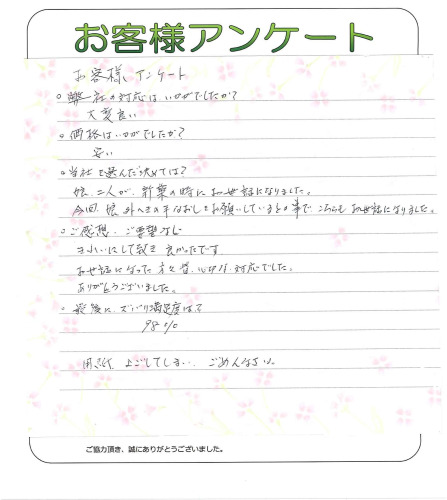 お客様アンケート
お客様アンケート
○弊社の対応はいかがでしたか?
大変良い
○価格はいかがでしたか?
安い
○当社を選んだ決めては?
娘、二人が、卒業の時にお世話になりました。
今回、娘 の お願いしているとの事で、こちらもお世話になりました。
○ご感想、ご要望など
きれいにして頂き良かったです
お世話になった 方々皆、心切な対応でした。
ありがとうございました。
○最後に、ズバリ満足度は?
98%
用紙、よごしてしまい、ごめんなさい。
ご協力頂き、誠にありがとうございました。